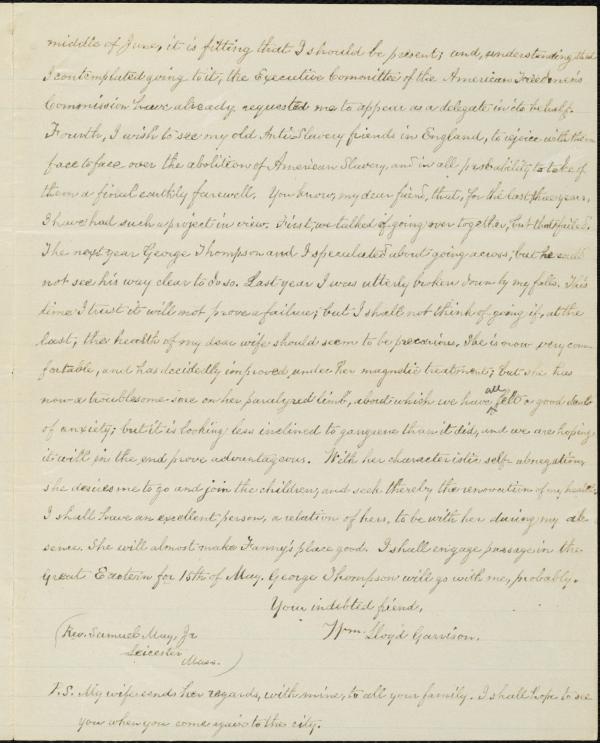 middle of June, it is fitting that I should be present; and, understanding that
I contemplated going to it, the Executive Committee of the American Freedmen's
Commission have already requested me to appear as a delegate in its behalf.
Fourth, I wish to see my old Anti-Slavery friends in England, to rejoice with them
face to face over the abolition of American Slavery, and in all probability to take of
them a final earthly farewell. You know, my dear friend, that, for the last three years,
I have had such a project in view. First, we talked of going over together, but that failed.
The next year George Thompson and I speculated about going across; but he could
not see his way clear to do so. Last year I was utterly broken down by my falls. This
time I trust it will not prove a failure; but I shall not think of going if, at the
last, the health of my dear wife should seem to be precarious. She is now very com-
fortable, and has decidedly improved under her magnetic treatment; but she has
now a troublesome sore on her paralyzed limb, about which we have all felt a good deal
of anxiety; but it is looking less inclined to gangrene than it did, and we are hoping
it will in the end prove advantageous. With her characteristic self-abnegation,
she desires me to go and join the children, and seek thereby the renovation of my health.
I shall have an excellent person, a relation of hers, to be with her during my ab-
sence. She will almost make Fanny's place good. I shall engage passage in the
Great Eastern for 15th of May. George Thompson will go with me, probably.
Your indebted friend,
Wm. Lloyd Garrison.
(Rev. Samuel May, Jr
Leicester
Mass.)
P.S. My wife sends her regards, with mine, to all your family. I shall hope to see
you when you come again to the city.